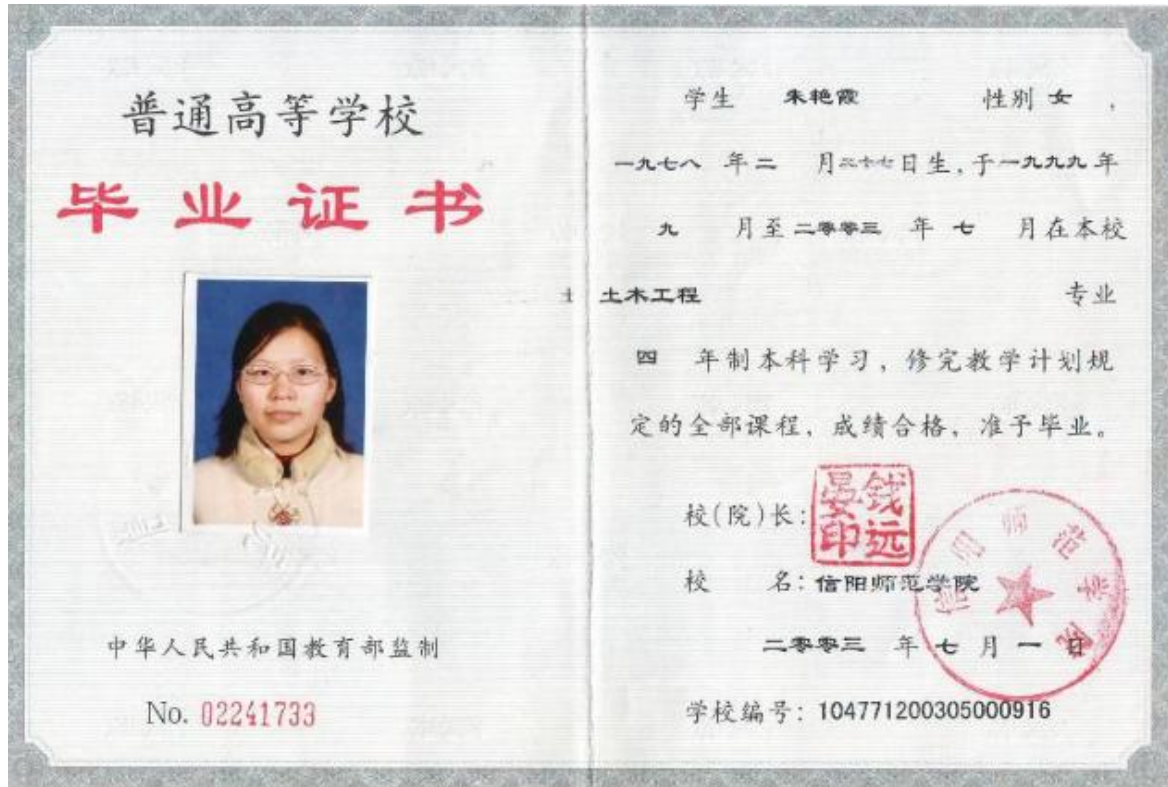 普通高等学校
毕业证书
中华人民共和国教育部监制
No. 02241733
学生 朱艳霞 性别 女 ,
一九七八 年 二 月 二十七 日生,于 一九九九 年
九 月至 二零零三 年 七 月在本校
土 土木工程 专业
四 年制本科学习, 修完教学计划规
定的全部课程, 成绩合格, 准予毕业。
校(院)长:
钱远晏印
校 名: 信阳师范学院
信阳师范学院
二零零三 年 七 月 一 日
学校编号: 104771200305000916